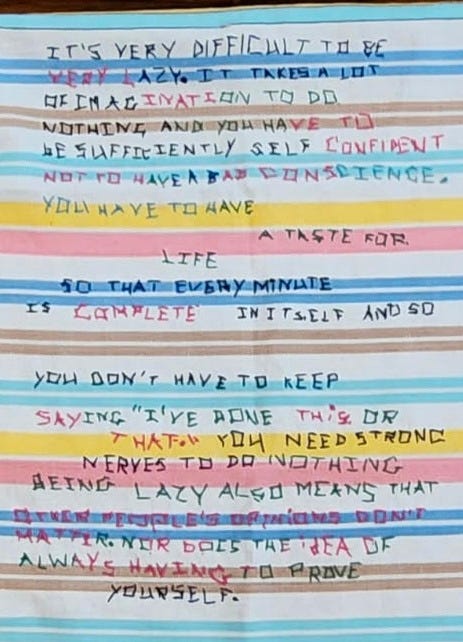 IT'S VERY DIFFICULT TO BE
VERY LAZY. IT TAKES A LOT
OF IMAGINATION TO DO
NOTHING AND YOU HAVE TO
BE SUFFICIENTLY SELF CONFIDENT
NOT TO HAVE A BAD CONSCIENCE.
YOU HAVE TO HAVE
A TASTE FOR
LIFE
SO THAT EVERY MINUTE
IS COMPLETE IN ITSELF AND SO
YOU DON'T HAVE TO KEEP
SAYING "I'VE DONE THiS OR
THAT." YOU NEED STRONG
NERVES TO DO NOTHING
BEING LAZY ALSO MEANS THAT
OTHER PEOPLE'S OPINIONS DON'T
MATTER. NOR DOES THE iDEA OF
ALWAYS HAVING TO PROVE
YOURSELF.